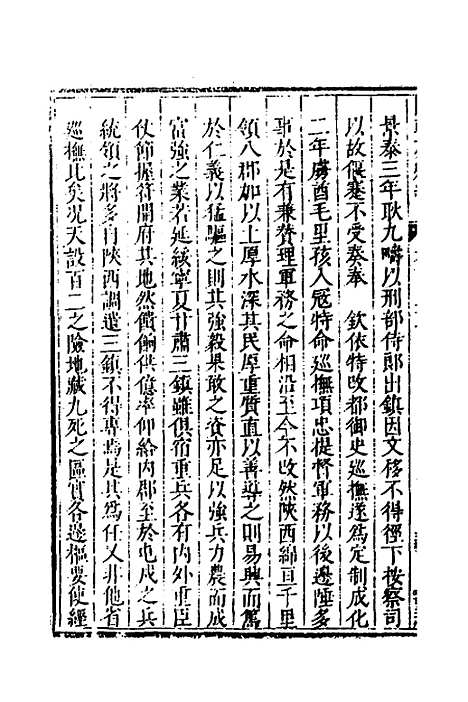 景泰三年耿九疇以刑部侍郎出鎮因文移不得徑下按察司
以故偃蹇不受奏奉　欽依特改都御史巡撫遂爲定制成化
二年虜酋毛里孩入冦特命巡撫項忠提督軍務以後邊陲多
事於是有兼贊理軍務之命相沿至今不改然陝西綿亘千里
領八郡加以上厚水深其民厚重質直以善導之則易興而篤
於仁義以猛驅之則其強毅果敢之資亦足以強兵力農而成
富強之業若延綏寧夏甘肅三鎮雖俱宿重兵各有内外重臣
仗節握符開府其地然餽餉供億率仰給内郡至於屯戍之兵
統領之將多自陝西調遣三鎮不得專焉是其爲任又非他省
巡撫比矣况天設百二之險地藏九死之區實各邊樞要使經